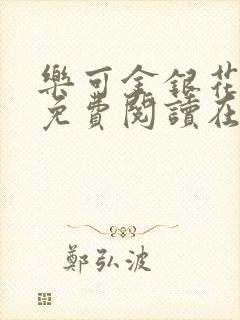 樂可金銀花
免費閱讀在
鄭弘波